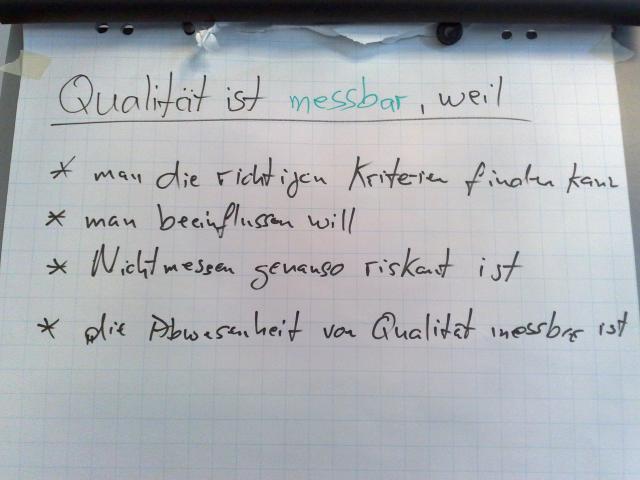 Qualität ist messbar, weil
* man die richtigen Kriterien finden kann
* man beeinflussen will
* Nichtmessen genauso riskant ist
* die Abwesenheit von Qualität messbar ist